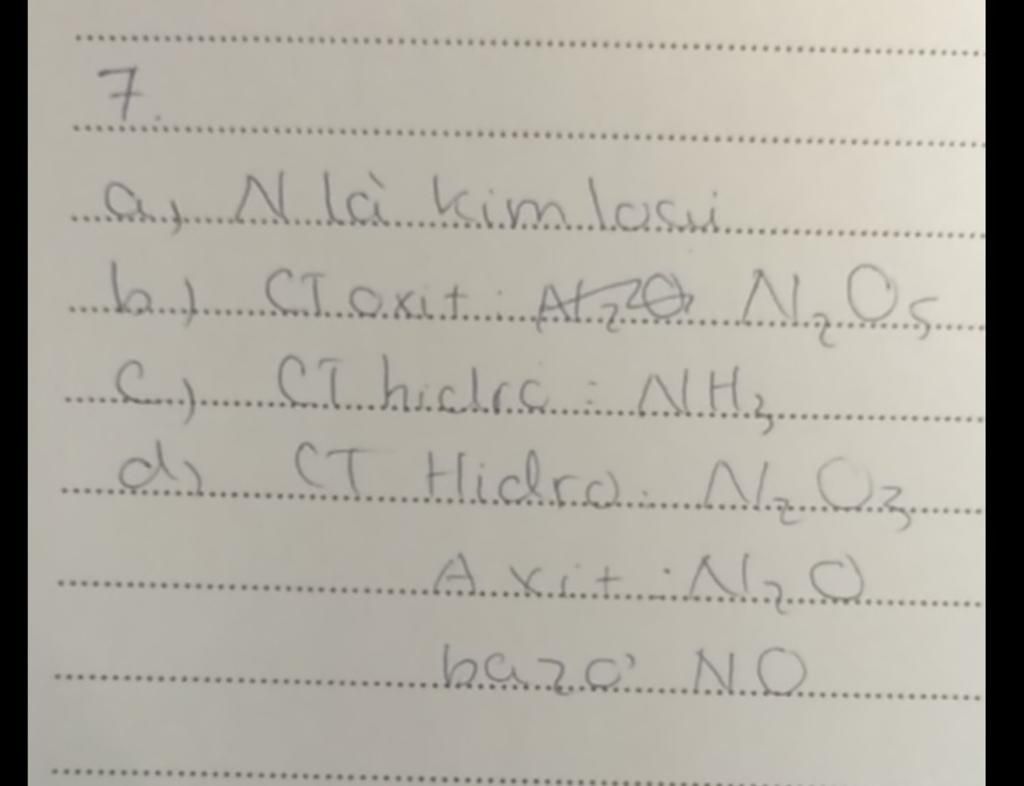 7.
a, N là kim loại
b.) CT oxit : N₂O₅
c.) CT hidrc : NH₃
d, CT Hidro : N₂O₃
Axit : N₂O
bazơ NO